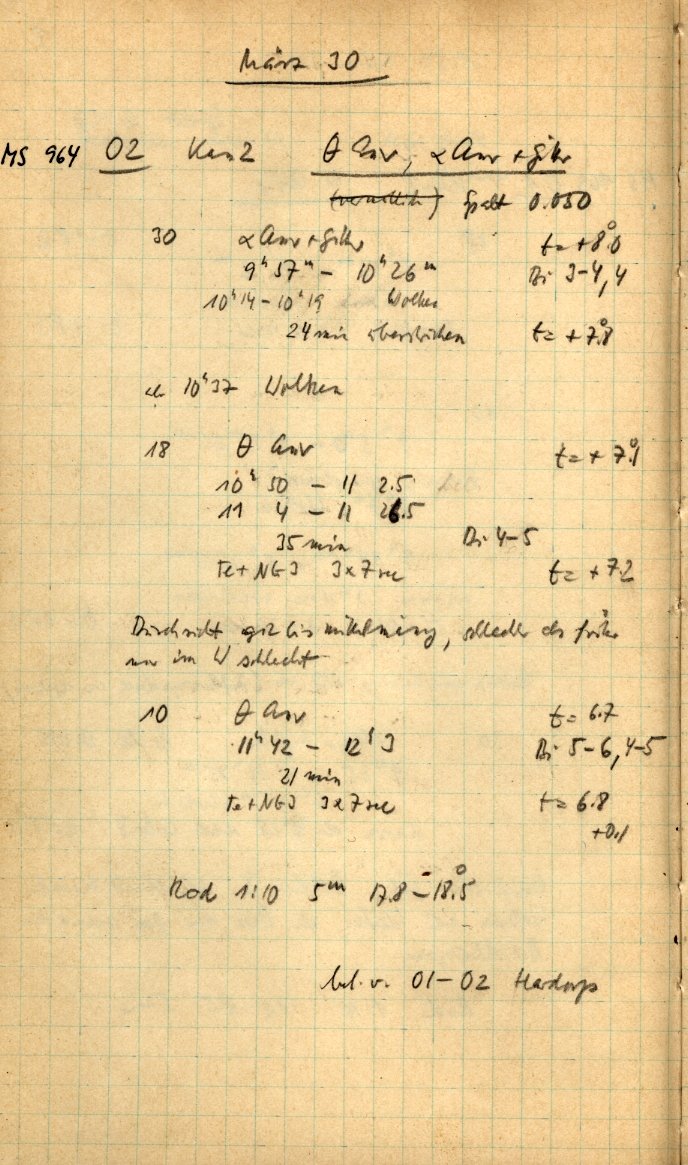 März 30
MS 964 02 Kam 2 θ Aur, α Aur + Gitter
Spalt 0.050
30 α Aur + Gitter t = +8°.0
9ʰ 57ᵐ – 10ʰ 26ᵐ Bi 3–4, 4
10ʰ 14 – 10ʰ 19 Wolken
24 min überstrichen t = +7°.8
ab 10ʰ 37 Wolken
18 θ Aur t = +7°.1
10ʰ 50 – 11 2.5
11 4 – 11 26.5
35 min Bi 4–5
Te + NG3 3x7 sec t = +7.2
Durchsicht gut bis mittelmässig, schlechter als früher
nur im W schlecht
10 θ Aur t = 6.7
11ʰ 42 – 12ʰ 3 Bi 5–6, 4–5
21 min
Te + NG3 3x7 sec t = 6.8
+0.1
Rod 1:10 5ᵐ 17.8 – 18°.5
bel. v. 01–02 Hardorp